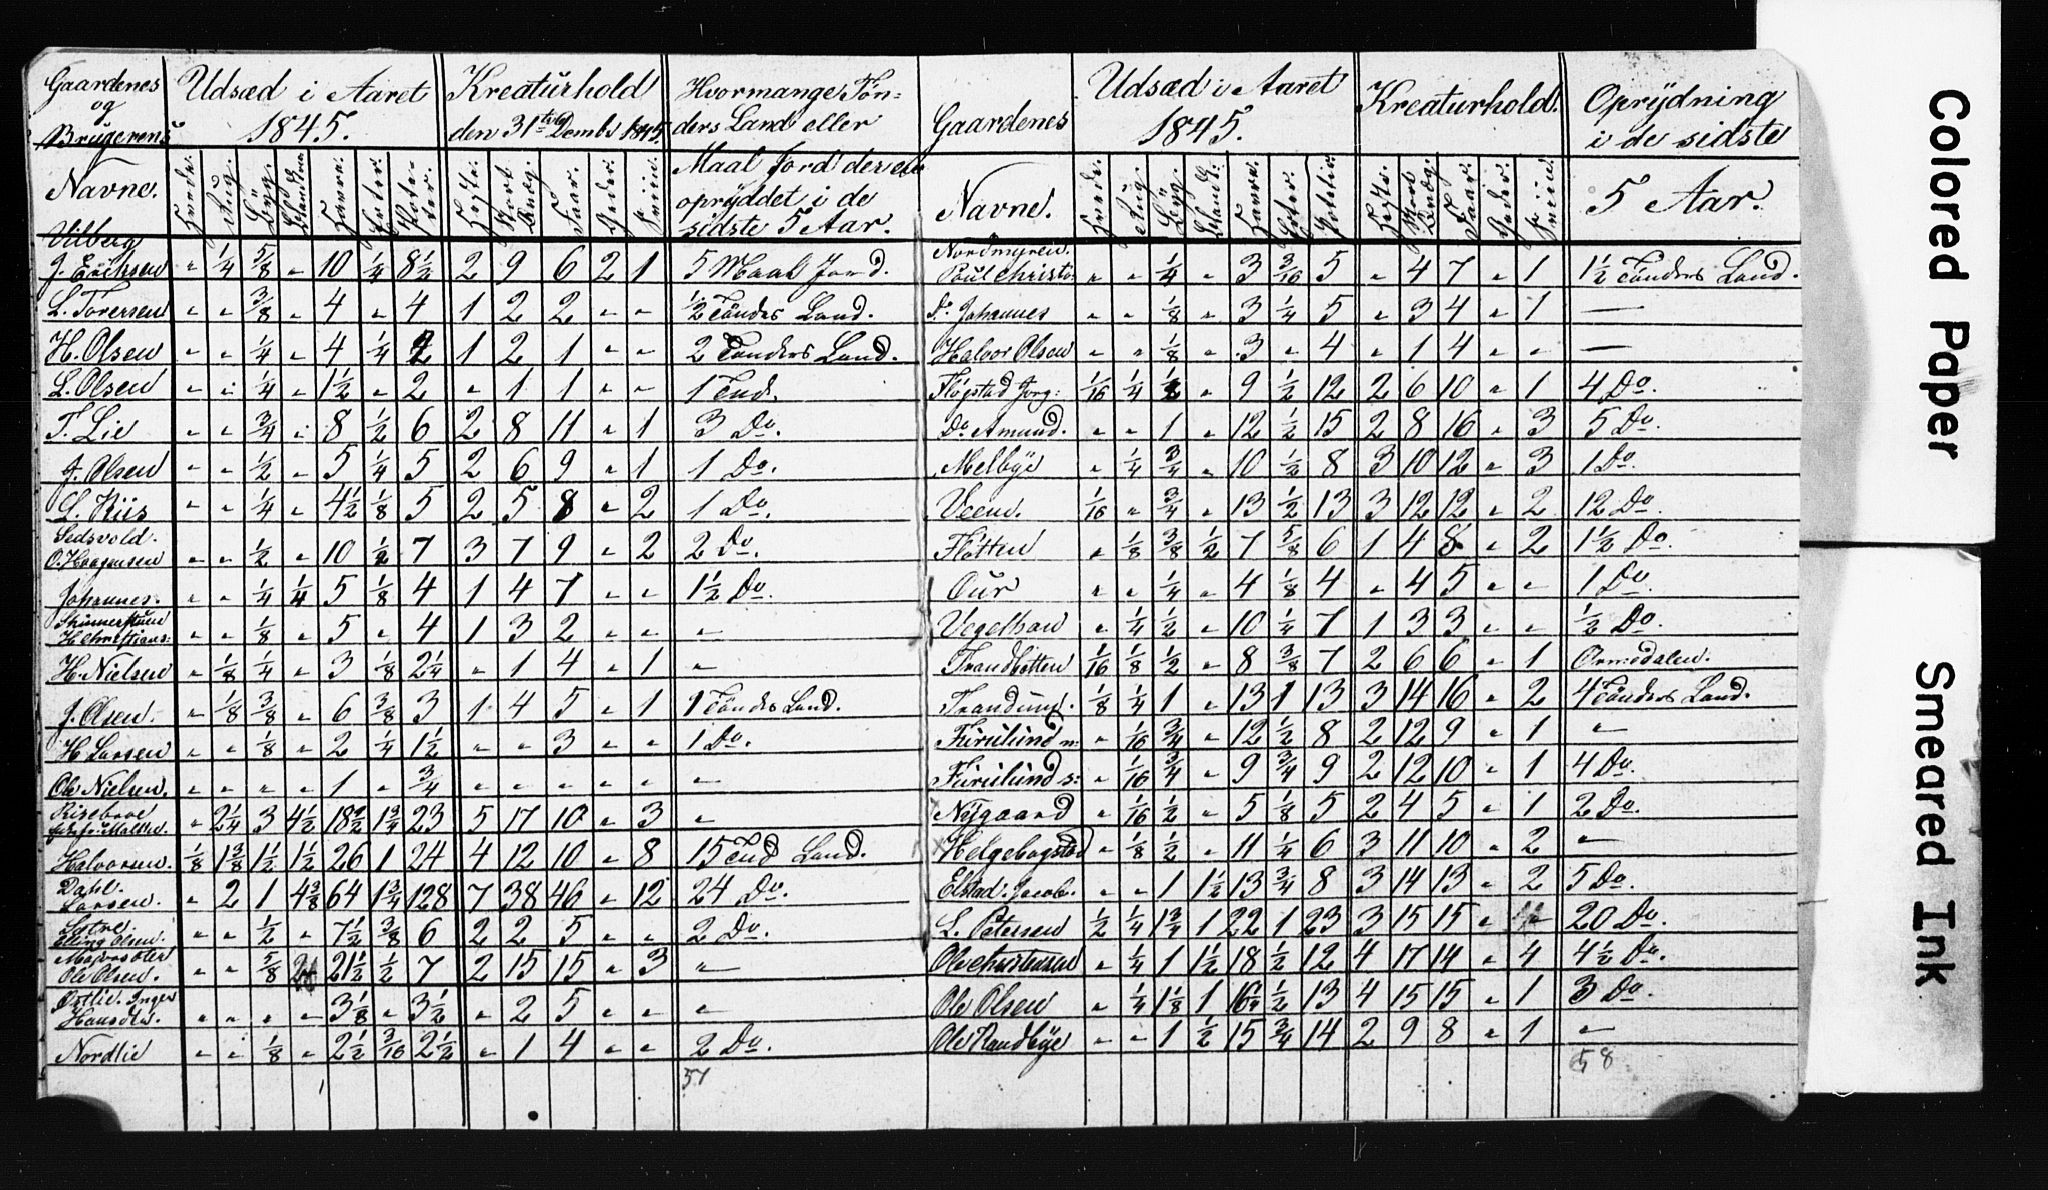 Gaardenes og Brugerens Navne. | Udsæd i Aaret 1845. | Kreaturhold den 31te Decmbr 1845. | Hvormange Tønders Land eller Maal Jord der er opryddet i de sidste 5 Aar.
Hvede. | Rug. | Byg. | Blandkorn | Havre. | Erter. | Poteter. | Heste. | Stort Qvæg. | Faar. | Geder. | Sviin.
Vilberg
J. Erichsen " 1/4 5/8 " 10 1/4 8 1/2 2 9 6 2 1 5 Maal Jord.
L. Torersen " " 3/8 " 4 " 4 1 2 2 " " 1/2 Tøndes Land.
H. Olsen " " 1/4 " 4 1/4 2 1 2 1 " " 2 Tønders Land.
L. Olsen " " 1/4 " 1 1/2 " 2 " 1 1 " " 1 Tnd.
T. Lie " " 3/4 " 8 1/2 6 2 8 11 " 1 3 Do.
J. Olsen " " 1/2 " 5 1/4 5 2 6 9 " 1 1 Do.
L. Kiis " " 1/4 " 4 1/2 1/8 5 2 5 8 " 2 1 Do.
Sedsvold.
O. Haagensen " " 1/2 " 10 1/2 7 3 7 9 " 2 2 Do.
Johannes. " " 1/4 1/4 5 1/8 4 1 4 7 " " 1 1/2 Do.
Skinnerstuen
H. Christians: " " 1/8 " 5 " 4 1 3 2 " " "
H. Nielsen " 1/8 1/4 " 3 1/8 2 1/4 " 1 4 " 1 "
J. Olsen. " 1/8 3/8 " 6 3/8 3 1 4 5 " 1 1 Tøndes Land.
H. Larsen " " 1/8 " 2 1/4 1 1/2 " " 3 " " 1 Do.
Ole Nielsen. " " " " 1 " 3/4 " " " " " "
Risebroe
Malthe. " 2 1/4 3 4 1/2 18 1/2 1 3/4 23 5 17 10 " 3 "
Halvorsen. 1/8 1 3/8 1 1/2 1 1/2 26 1 24 4 12 10 " 8 15 Tnd Land.
Dahl.
Larsen. " 2 1 4 3/8 64 1 3/4 128 7 38 46 " 12 24 Do.
Sætre.
Elling Olsen. " " 1/2 " 7 1/2 3/8 6 2 2 5 " " 2 Do.
Ole Olsen. " " 5/8 2 21 1/2 1/2 7 2 15 15 " 3 "
Østlie. Inger
Hansdtr. " " " " 3 1/8 " 3 1/2 " 2 5 " " "
Nordlie " " 1/8 " 2 1/2 3/16 2 1/2 " 1 4 " " 2 Do.
51
Gaardenes Navne. | Udsæd i Aaret 1845. | Kreaturhold. | Oprydning i de sidste 5 Aar.
Hvede. | Rug. | Byg. | Blandk. | Havre. | Erter. | Poteter. | Heste. | Stort Qvæg. | Faar. | Geder. | Sviin.
Nordmyren.
Poul Christo: " " 1/4 " 3 3/16 5 " 4 7 " 1 1 1/2 Tønders Land.
Do. Johannes " " 1/8 " 3 1/4 5 " 3 4 " 1 —
Halvor Olsen " " 1/8 " 3 " 4 " 1 4 " " —
Fløgstad Jørg: 1/16 1/4 1/2 " 9 1/2 12 2 6 10 " 1 4 Do.
Do. Amund. " " 1 " 12 1/2 15 2 8 16 " 3 5 Do.
Melbye " 1/4 3/4 " 10 1/2 8 3 10 12 " 3 1 Do.
Veen. 1/16 " 3/4 " 13 1/2 13 3 12 12 " 2 12 Do.
Fløtten " 1/8 3/8 1/2 7 5/8 6 1 4 8 " 2 1 1/2 Do.
Our " " 1/4 " 4 1/8 4 " 4 5 " " 1 Do.
Vegelsan " 1/4 1/2 " 10 1/4 7 1 3 3 " " 1/2 Do.
Trandbøtten 1/16 1/8 1/2 " 8 3/8 7 2 6 6 " 1 Ormedalen.
Trandum. 1/8 1/4 1 " 13 1 13 3 14 16 " 2 4 Tønders Land.
Furulund n: " 1/16 3/4 " 12 1/2 8 2 12 9 " 1 "
Furulund s: " 1/16 3/4 " 9 3/4 9 2 12 10 " 1 4 Do.
Nygaard " 1/16 1/2 " 5 1/8 5 2 4 5 " 1 2 Do.
x Helgebogstad " 1/8 1/2 " 11 1/4 6 3 11 10 " 2 "
Elstad. Jacob. " " 1 1 1/2 13 3/4 8 3 14 13 " 2 5 Do.
L. Petersen 1/2 1/4 1 3/4 1 22 1 23 3 15 15 " 20 Do.
Ole Christensen " 1/4 1 1 1/2 18 1/2 12 4 17 14 " 4 4 1/2 Do.
Ole Olsen " 1/4 1 1/8 1 16 1/2 13 4 15 15 " 1 3 Do.
Ole Randbye " " 1 1/2 15 3/4 14 2 9 8 " 1 "
58
Colored Paper
Smeared Ink